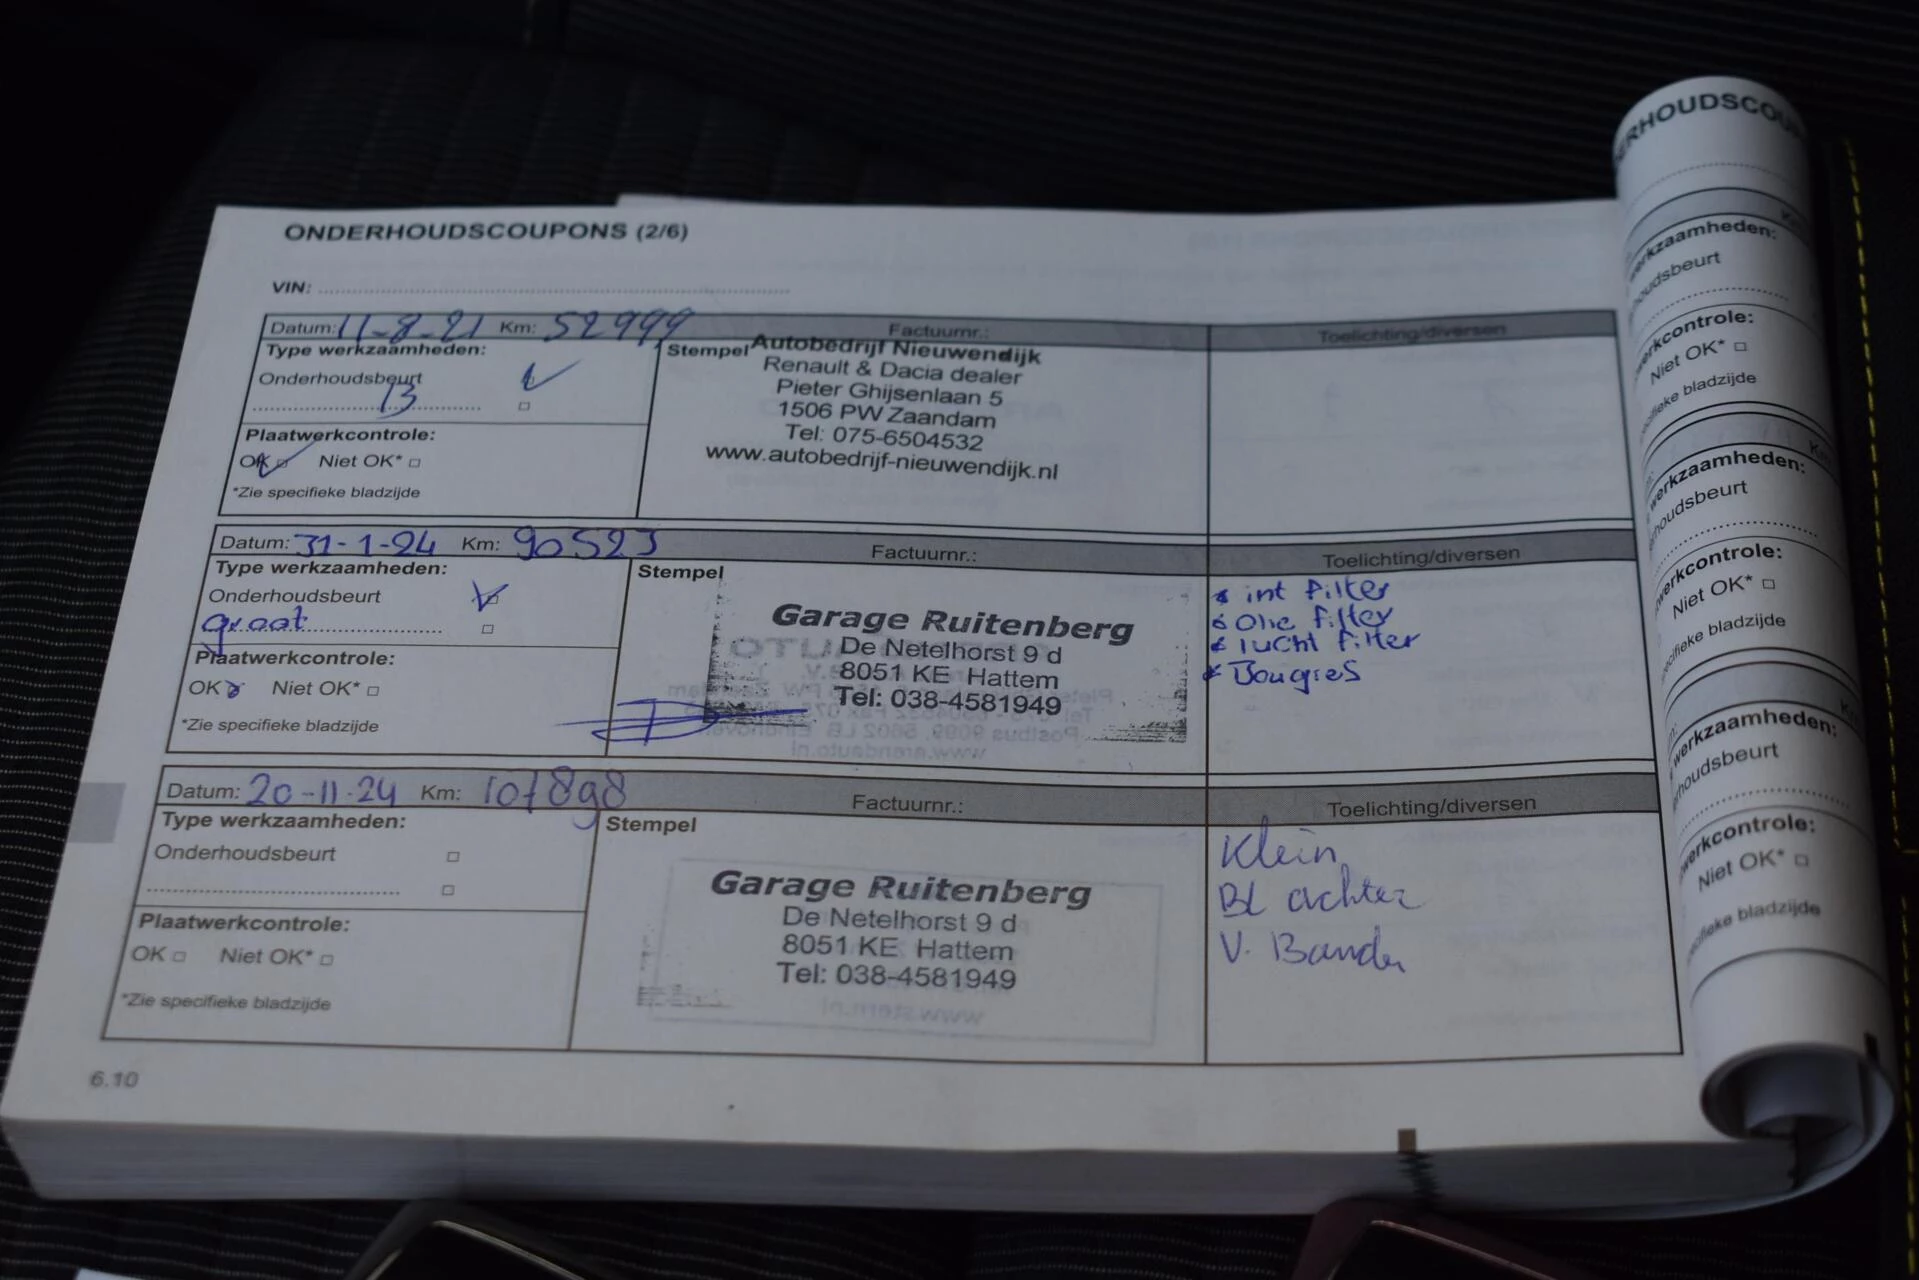 ONDERHOUDSCOUPONS (2/6)
VIN:
Datum: 11-8-21 Km: 52999 Factuurnr.: Toelichting/diversen
Type werkzaamheden:
Onderhoudsbeurt
13
Plaatwerkcontrole:
OK Niet OK*
*Zie specifieke bladzijde
Stempel
Autobedrijf Nieuwendijk
Renault & Dacia dealer
Pieter Ghijsenlaan 5
1506 PW Zaandam
Tel: 075-6504532
www.autobedrijf-nieuwendijk.nl
Datum: 31-1-24 Km: 90523 Factuurnr.: Toelichting/diversen
Type werkzaamheden:
Onderhoudsbeurt
groot
Plaatwerkcontrole:
OK Niet OK*
*Zie specifieke bladzijde
Stempel
Garage Ruitenberg
De Netelhorst 9 d
8051 KE Hattem
Tel: 038-4581949
* int filter
* Olie filter
* lucht filter
* Bougies
Datum: 20-11-24 Km: 107898 Factuurnr.: Toelichting/diversen
Type werkzaamheden:
Onderhoudsbeurt
Plaatwerkcontrole:
OK Niet OK*
*Zie specifieke bladzijde
Stempel
Garage Ruitenberg
De Netelhorst 9 d
8051 KE Hattem
Tel: 038-4581949
Klein
BL achter
V. Banden
6.10
werkzaamheden:
Niet OK*
werkzaamheden:
Niet OK*
werkzaamheden:
Niet OK*